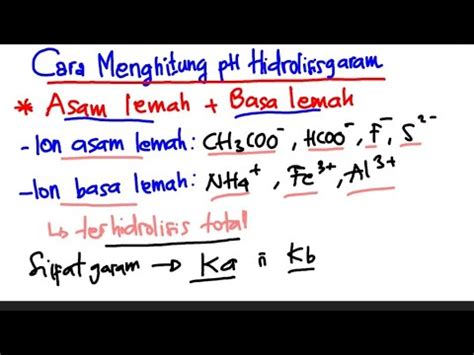 Cara Menghitung pH Hidrolisis garam
* Asam lemah + Basa lemah
- Ion asam lemah : CH₃COO⁻, HCOO⁻, F⁻, S²⁻
- Ion basa lemah : NH₄⁺, Fe³⁺, Al³⁺
↳ terhidrolisis total
Sifat garam → Ka ñ Kb